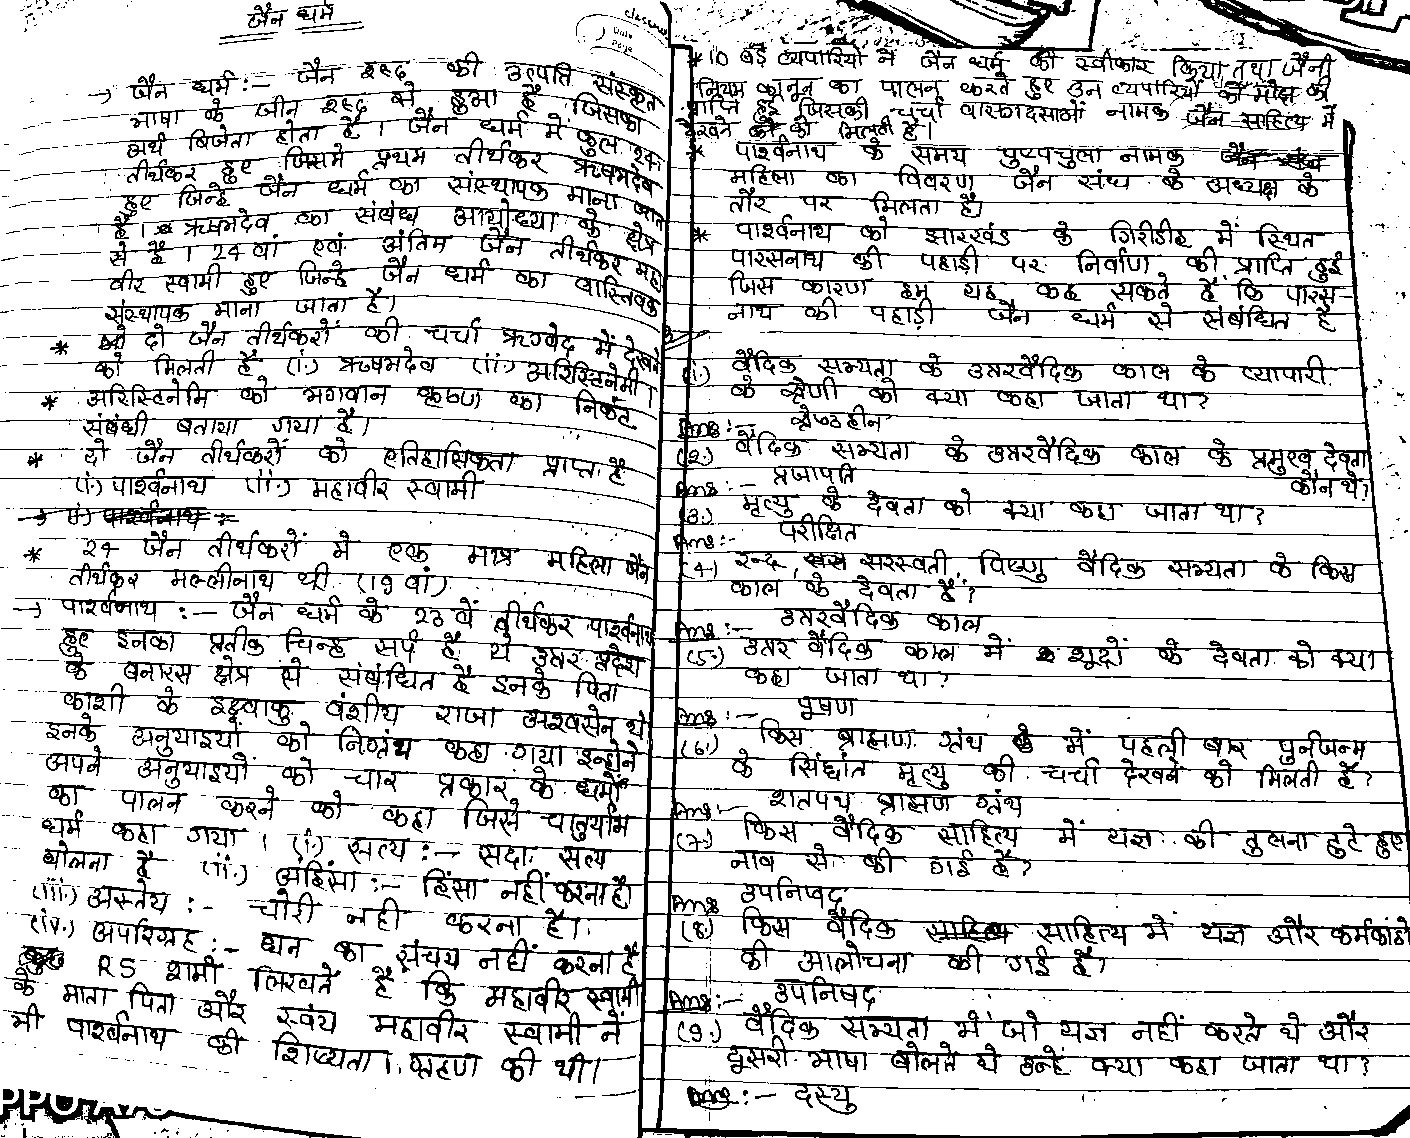 जैन धर्म
→ जैन धर्म :- जैन शब्द की उत्पत्ति संस्कृत
भाषा के जीन शब्द से हुआ है जिसका
अर्थ विजेता होता है। जैन धर्म में कुल 24
तीर्थकर हुए जिसमे प्रथम तीर्थकर ऋषभदेव
हुए जिन्हे जैन धर्म का संस्थापक माना जाता
है। ऋषभदेव का संबंध आयोध्या के क्षेत्र
से है। 24 वां एवं अंतिम जैन तीर्थकर महा
वीर स्वामी हुए जिन्हे जैन धर्म का वास्तिवक
संस्थापक माना जाता है।
* दो जैन तीर्थकरों की चर्चा ऋग्वेद में देखने
को मिलती है (i.) ऋषभदेव (ii.) अरिस्टिनेमी।
* अरिस्टिनेमि को भगवान कृष्ण का निकट
संबंधी बताया गया है।
* दो जैन तीर्थकरों को एतिहासिकता प्राप्त है
(i.) पार्श्वनाथ (ii.) महावीर स्वामी
→ (i) पार्श्वनाथ :-
* 24 जैन तीर्थकरों मे एक मात्र महिला जैन
तीर्थकर मल्लीनाथ थी (19 वां)
→ पार्श्वनाथ :- जैन धर्म के 23 वें तीर्थकर पार्श्वनाथ
हुए इनका प्रतीक चिन्ह सर्प है ये उत्तर प्रदेश
के बनारस क्षेत्र से संबंधित है इनके पिता
काशी के इक्ष्वाकु वंशीय राजा अश्वसेन थे
इनके अनुयाइयों को निग्रंथ कहा गया इन्होने
अपने अनुयाइयों को चार प्रकार के धर्मों
का पालन करने को कहा जिसे चातुर्याम
धर्म कहा गया। (i.) सत्य :- सदा सत्य
बोलना है (ii.) अहिंसा :- हिंसा नहीं करना है।
(iii.) अस्तेय :- चोरी नही करना है।
(iv.) अपरिग्रह :- धन का संचय नहीं करना है
RS शर्मा लिखते है कि महावीर स्वामी
के माता पिता और स्वंय महावीर स्वामी नें
भी पार्श्वनाथ की शिष्यता। ग्रहण की थी।
* 10 बड़े व्यपारियों नें जैन धर्म को स्वीकार किया तथा जैनी
नियम कानून का पालन करते हुए उन व्यपारियों को मोक्ष की
प्राप्ति हुई जिसकी चर्चा नामक जैन साहित्य में
देखने को मिलती है।
* पार्श्वनाथ के समय पुष्पचुला नामक
महिला का विवरण जैन संघ के अध्यक्ष के
तौर पर मिलता है।
* पार्श्वनाथ को झारखंड के गिरीडीह में स्थित
पारसनाथ की पहाड़ी पर निर्वाण की प्राप्ति हुई
जिस कारण हम यह कह सकते हैं कि पारस
नाथ की पहाड़ी जैन धर्म से संबंधित है
(1.) वैदिक सभ्यता के उत्तरवैदिक काल के व्यापारी
के श्रेणी को क्या कहा जाता था?
Ans :- श्रेष्ठहीन
(2.) वैदिक सभ्यता के उत्तरवैदिक काल के प्रमुख देवता
कौन थे?
Ans :- प्रजापति
(3.) मृत्यु के देवता को क्या कहा जाता था?
Ans :- परीक्षित
(4.) इन्द्र, सरस्वती, विष्णु वैदिक सभ्यता के किस
काल के देवता है?
Ans :- उत्तरवैदिक काल
(5.) उत्तर वैदिक काल में शूद्रों के देवता को क्या
कहा जाता था?
Ans :- पूषण
(6.) किस ब्राह्मण ग्रंथ में पहली बार पुर्नजन्म
के सिंद्धांत मृत्यु की चर्चा देखने को मिलती है?
Ans :- शतपथ ब्राह्मण ग्रंथ
(7.) किस वैदिक साहित्य में यज्ञ की तुलना टुटे हुए
नाव से की गई है?
Ans उपनिषद
(8.) किस वैदिक साहित्य में यज्ञ और कर्मकांडो
की आलोचना की गई है?
Ans :- उपनिषद
(9.) वैदिक सभ्यता में जो यज्ञ नहीं करते थे और
दूसरी भाषा बोलते थे उन्हें क्या कहा जाता था?
Ans :- दस्यु